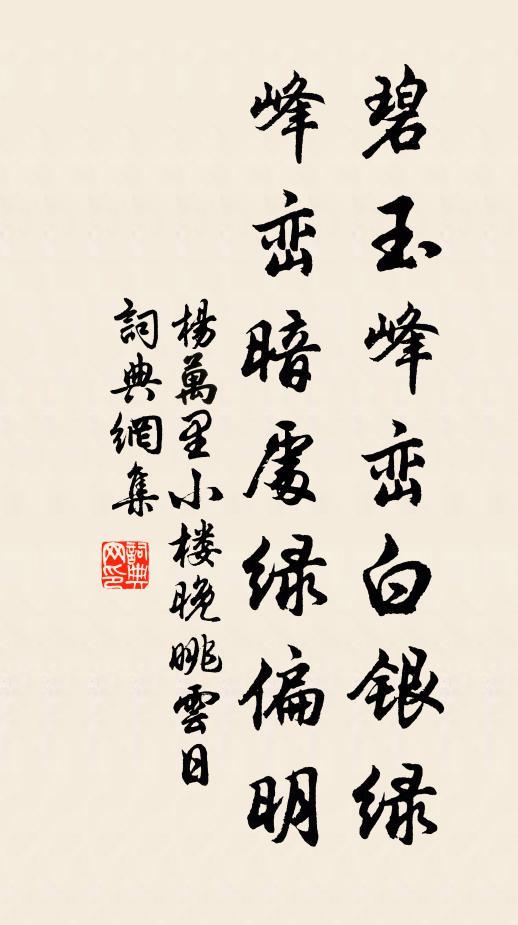 碧玉峰峦白银绿
峰峦暗處绿偏明
楊萬里小楼晚眺雲日
詞典網集
詞典网印